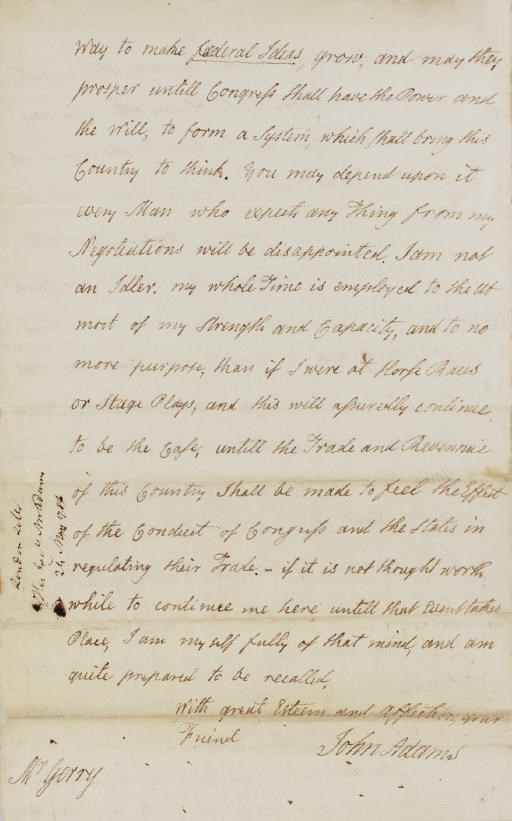 Way to make fœderal Ideas, grow, and may they
prosper untill Congress shall have the Power and
the Will, to form a System, which shall bring this
Country to think. You may depend upon it
every Man who expects any Thing from my
Negotiations will be disappointed. I am not
an Idler. my whole Time is employed to the Ut
most of my Strength and Capacity, and to no
more purpose, than if I were at Horse Races
or Stage Plays, and this will assuredly continue
to be the Case, untill the Trade and Revennue
of this Country shall be made to feel the Effect
of the Conduct of Congress and the States in
regulating their Trade. - if it is not thought worth
while to continue me here untill that Event takes
Place, I am myself fully of that mind, and am
quite prepared to be recalled.
With great Esteem and Affection, your
Friend
John Adams
Mr Gerry
London Lettr
Mr Adams
24 May 1786